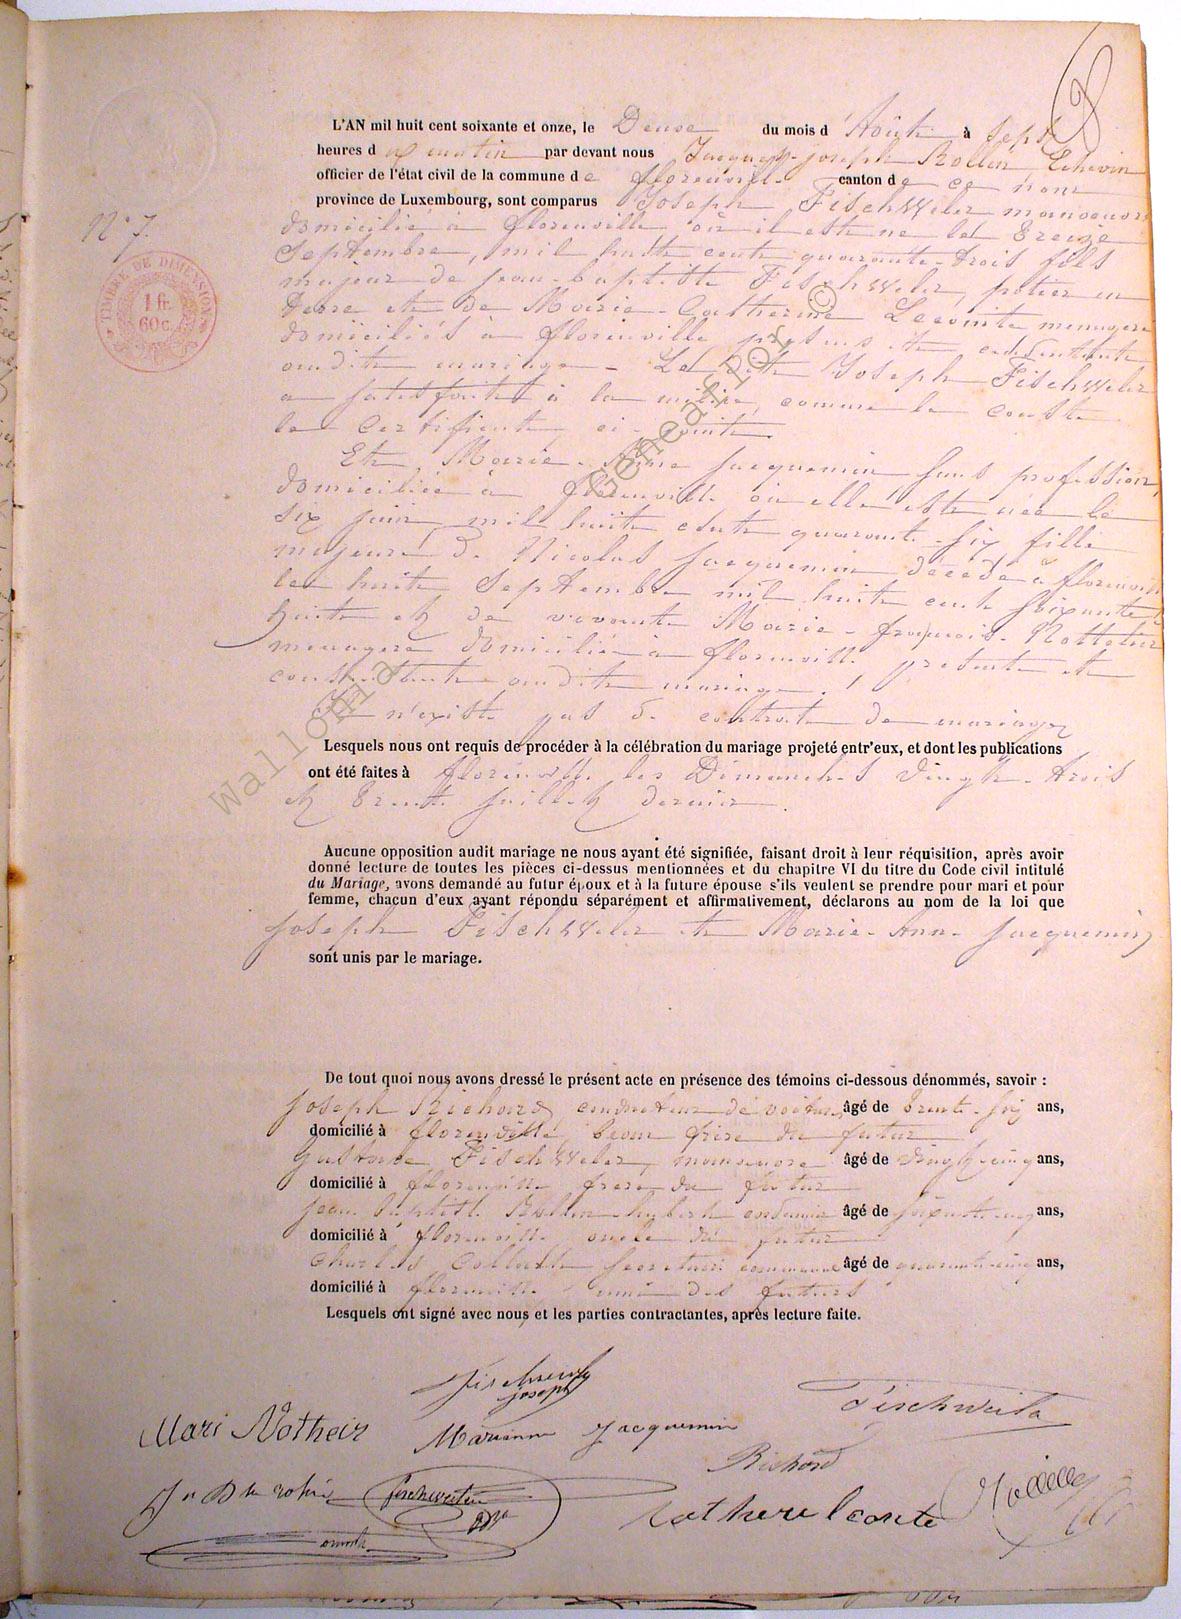 N° 7.
TIMBRE DE DIMENSION
1 fr.
60 c.
L'AN mil huit cent soixante et onze, le Deuse du mois d'Août à Sept
heures d u matin par devant nous Jacques-Joseph Rollin, Echevin
officier de l'état civil de la commune de florenville canton de ce nom
province de Luxembourg, sont comparus Joseph FischWeiler manoeuvre
domicilié à florenville où il est né le treize
Septembre, mil huit cent quarante-trois fils
majeur de jean-baptiste FischWeiler, potier en
terre et de Marie-Catherine Lecomte menagere
domiciliés à florenville présents et consentants
audit mariage - Le dit Joseph FischWeiler
a satisfait à la milice, comme le conste
le certificat, ci-joint.
Et Marie-Anne Jacquemin sans profession,
domiciliée à florenville où elle est née le
six juin, mil huit cent quarante-six fille
majeure de Nicolas Jacquemin décédé à florenville
le huit Septembre mil huit cent soixante
huit et de vivante Marie-françoise
menagere domiciliée à florenville présente et
consentante audit mariage.
Il n'existe pas de contrat de mariage
Lesquels nous ont requis de procéder à la célébration du mariage projeté entr'eux, et dont les publications
ont été faites à florenville les Dimanches vingt-trois
et trente juillet dernier.
Aucune opposition audit mariage ne nous ayant été signifiée, faisant droit à leur réquisition, après avoir
donné lecture de toutes les pièces ci-dessus mentionnées et du chapitre VI du titre du Code civil intitulé
du Mariage, avons demandé au futur époux et à la future épouse s'ils veulent se prendre pour mari et pour
femme, chacun d'eux ayant répondu séparément et affirmativement, déclarons au nom de la loi que
Joseph FischWeiler et Marie-Anne Jacquemin
sont unis par le mariage.
De tout quoi nous avons dressé le présent acte en présence des témoins ci-dessous dénommés, savoir :
Joseph Richard, conducteur de voiture, âgé de trente-six ans,
domicilié à florenville, beau frère du futur
Gustave FischWeiler, manoeuvre âgé de vingt-cinq ans,
domicilié à florenville frère du futur
Jean Baptiste Rollin-hubert âgé de soixante-cinq ans,
domicilié à florenville oncle du futur
Charles Collart Secretaire communal âgé de quarante-cinq ans,
domicilié à florenville ami des futurs
Lesquels ont signé avec nous et les parties contractantes, après lecture faite.
Fischweiler
joseph
Fischweiler
Mari Notheir
Marianne Jacquemin
Richard
fischweiler
Catherine lecomte
Wallonia Geneaflor ©